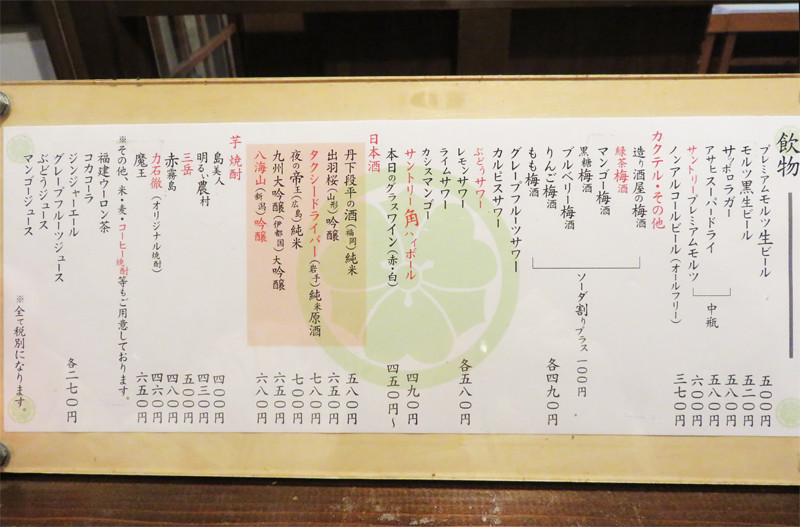 飲物
プレミアムモルツ生ビール 五〇〇円
モルツ黒生ビール 五二〇円
サッポロラガー 五八〇円
アサヒスーパードライ 五八〇円
サントリープレミアムモルツ 六〇〇円
中瓶
ノンアルコールビール(オールフリー) 三七〇円
カクテル・その他
造り酒屋の梅酒
緑茶梅酒
マンゴー梅酒
黒糖梅酒
ブルベリー梅酒
りんご梅酒
もも梅酒
ソーダ割りプラス一〇〇円
各四九〇円
グレープフルーツサワー
カルピスサワー
ぶどうサワー
レモンサワー
ライムサワー
カシスマンゴー
各五八〇円
サントリー角ハイボール 四九〇円
本日のグラスワイン(赤・白) 四五〇円〜
日本酒
丹下段平の酒(福岡)純米 五八〇円
出羽桜(山形)吟醸 六五〇円
タクシードライバー(岩手)純米原酒 七八〇円
夜の帝王(広島)純米 七〇〇円
九州大吟醸(伊都国)大吟醸 六五〇円
八海山(新潟)吟醸 六八〇円
芋焼酎
島美人 四〇〇円
明るい農村 四三〇円
三岳 五〇〇円
赤霧島 四八〇円
力石徹(オリジナル焼酎) 四六〇円
魔王 六五〇円
※その他、米・麦・コーヒー焼酎等もご用意しております。
福建ウーロン茶
コカコーラ
ジンジャーエール
グレープフルーツジュース
ぶどうジュース
マンゴージュース
各二七〇円
※全て税別になります。